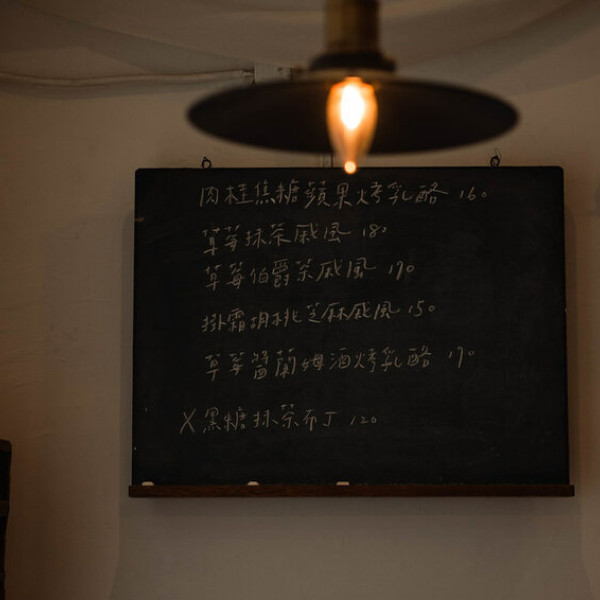 肉桂焦糖蘋果烤乳酪 160
草莓抹茶戚風 180
草莓伯爵茶戚風 190
掛霜胡桃芝麻戚風 150
草莓醬蘭姆酒烤乳酪 190
X黑糖抹茶布丁 120